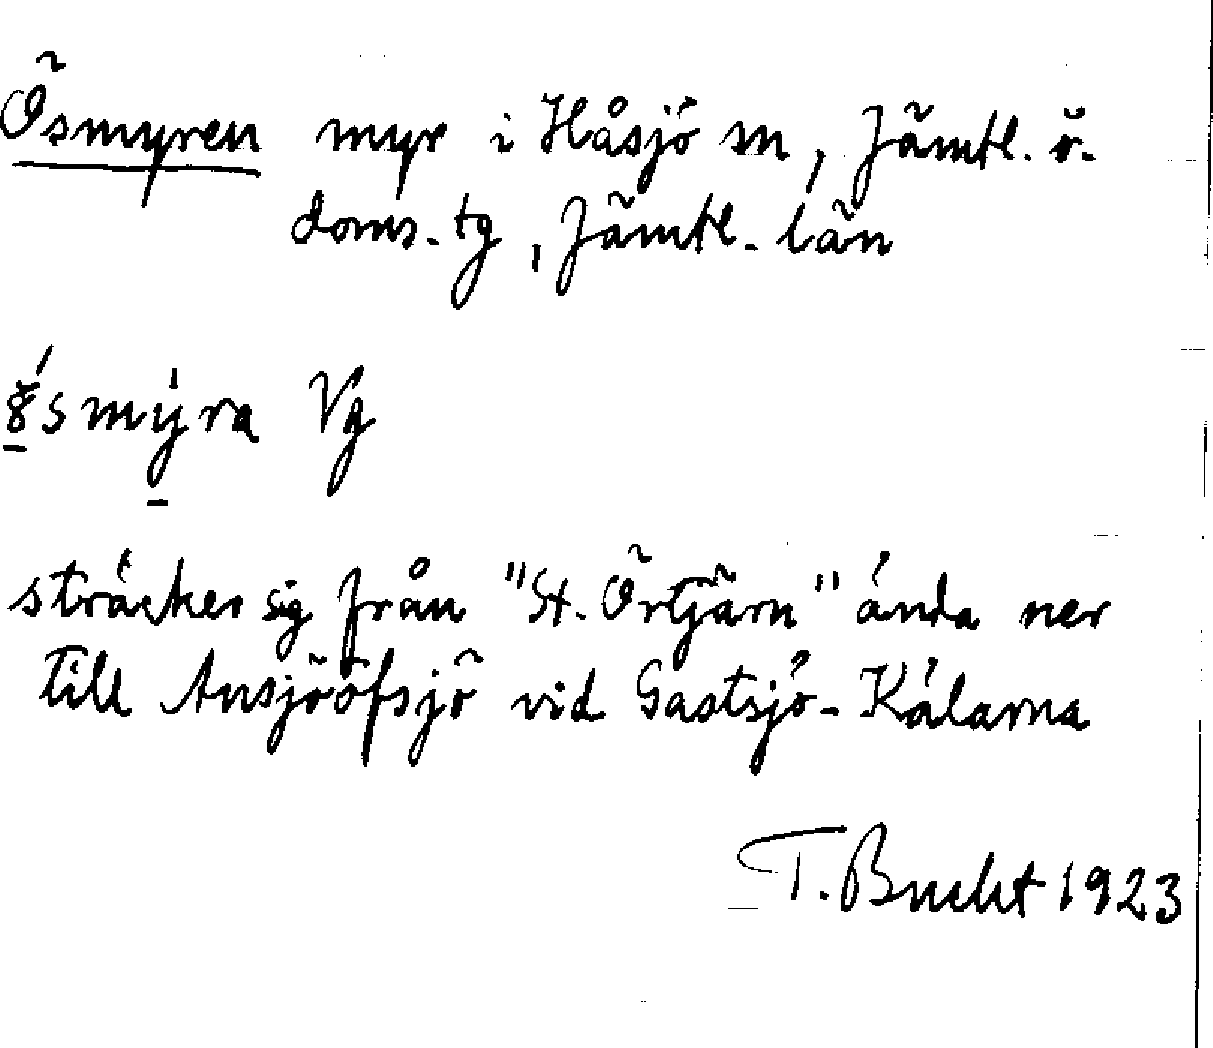 Ösmyren myr i Håsjö sn, Jämtl. ö.
doms. tg, Jämtl. län
smýra Vg
sträcker sig från "St. Örtjärn" ända ner
till Ansjööfsjö vid Gastsjö-Kälarna
T. Bucht 1923